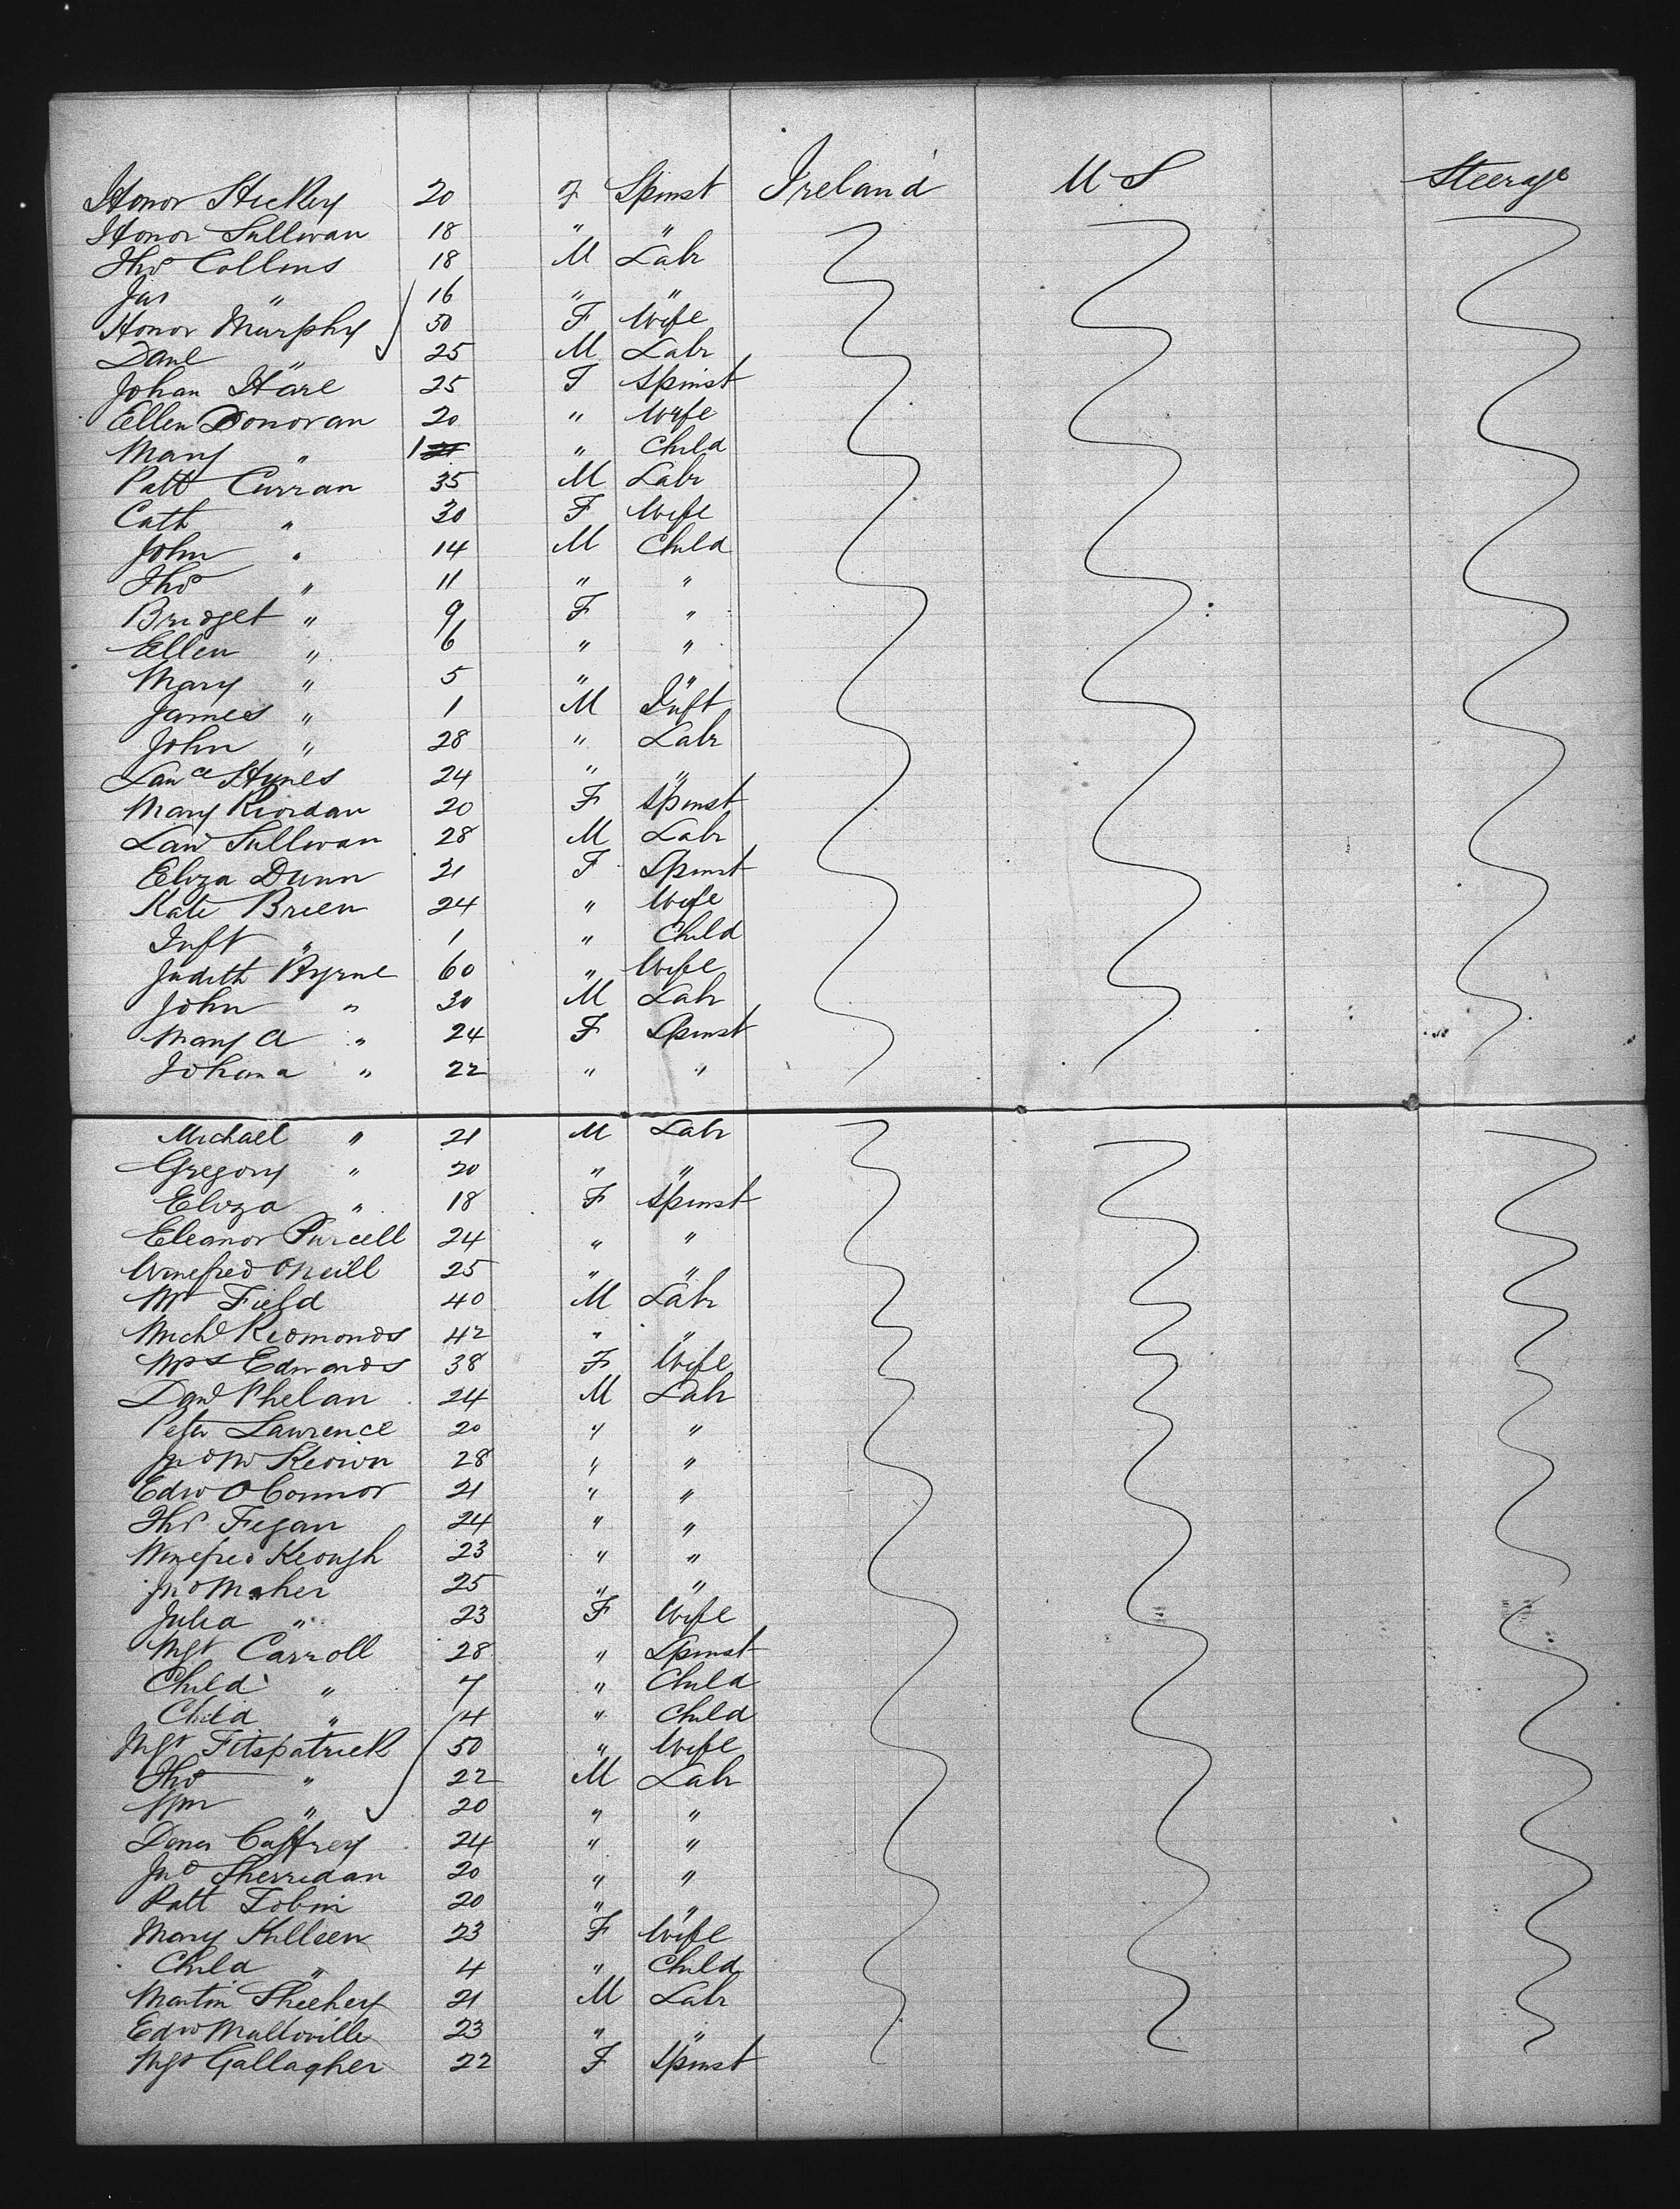 Honor Hickey 20 F Spinst Ireland U S Steerage
Honor Sullivan 18 " "
Thos Collins 18 M Labr
Jas " 16 " "
Honor Murphy 50 F Wife
Danl " 25 M Labr
Johan Hare 25 F Spinst
Ellen Donovan 20 " Wife
Mary " 1 " Child
Patt Curran 35 M Labr
Cath " 30 F Wife
John " 14 M Child
Thos " 11 " "
Bridget " 9 F "
Ellen " 6 " "
Mary " 5 " "
James " 1 M Inft
John " 28 " Labr
Lance Hynes 24 " "
Mary Riordan 20 F Spinst
Law Sullivan 28 M Labr
Eliza Dunn 21 F Spinst
Kate Breen 24 " Wife
Inft " 1 " Child
Judith Byrne 60 " Wife
John " 30 M Labr
Mary A " 24 F Spinst
Johana " 22 " "
Michael " 21 M Labr
Gregory " 20 " "
Eliza " 18 F Spinst
Eleanor Purcell 24 " "
Winefred ONeill 25 " "
Mr Field 40 M Labr
Michl Redmonds 42 " "
Mrs Edwards 38 F Wife
Danl Phelan 24 M Labr
Peter Lawrence 20 " "
Jno Mc Keown 28 " "
Edw O Connor 21 " "
Thos Fegan 24 " "
Winefred Keough 23 " "
Jno Maher 25 " "
Julia " 23 F Wife
Mgt Carroll 28 " Spinst
Child " 7 " Child
Child " 4 " Child
Mgt Fitspatrick 50 " Wife
Thos " 22 M Labr
Wm " 20 " "
Caffrey 24 " "
Jno Sherridan 20 " "
Patt Tobin 20 " "
Mary Killeen 23 F Wife
Child " 4 " Child
Martin Sheehey 21 M Labr
Edw 23 " "
Mgt Gallagher 22 F Spinst